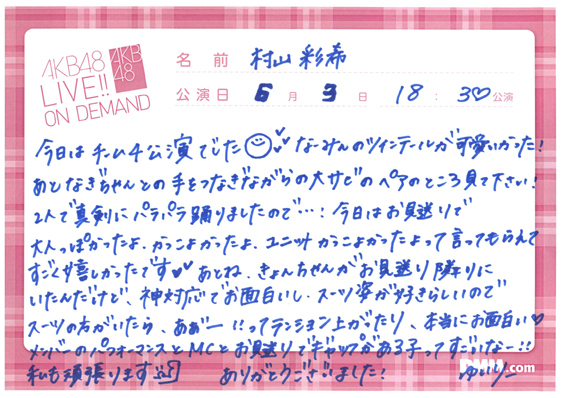 AKB48
LIVE!!
ON DEMAND
AKB
48
名前 村山彩希
公演日 6月3日 18:30公演
今日はチーム4公演でした なーみんのツインテールが可愛いかった!
あとなぎちゃんとの手をつなぎながらの大サビのペアのところ見て下さい!
2人で真剣にパラパラ踊りましたので…! 今日はお見送りで
大人っぽかったよ、かっこよかったよ、ユニットかっこよかったよって言ってもらえて
すごく嬉しかったです あとね、きょんちゃんがお見送り隣りに
いたんだけど、神対応でお面白いし、スーツ姿が好きらしいので
スーツの方がいたら、あぁ゛ー!!ってテンション上がたり、本当にお面白い
メンバーのパフォーマンスとMCとお見送りでギャップがある子ってすごいなー!!
私も頑張ります ありがとうございました! ゆいりー
DMM.com